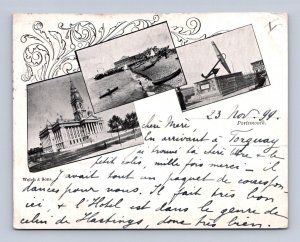 Portsmouth.
23 Nov. 99
Welch & Sons.
chère Meri,
En arrivant à Torquay
je trouve ta chère lettre & le
petit colis, mille fois merci – il y
avait tout un paquet de correspon
dances pour nous. Il fait très bon
ici, & l'Hôtel est dans le genre de
celui de Hastings, donc très bien.